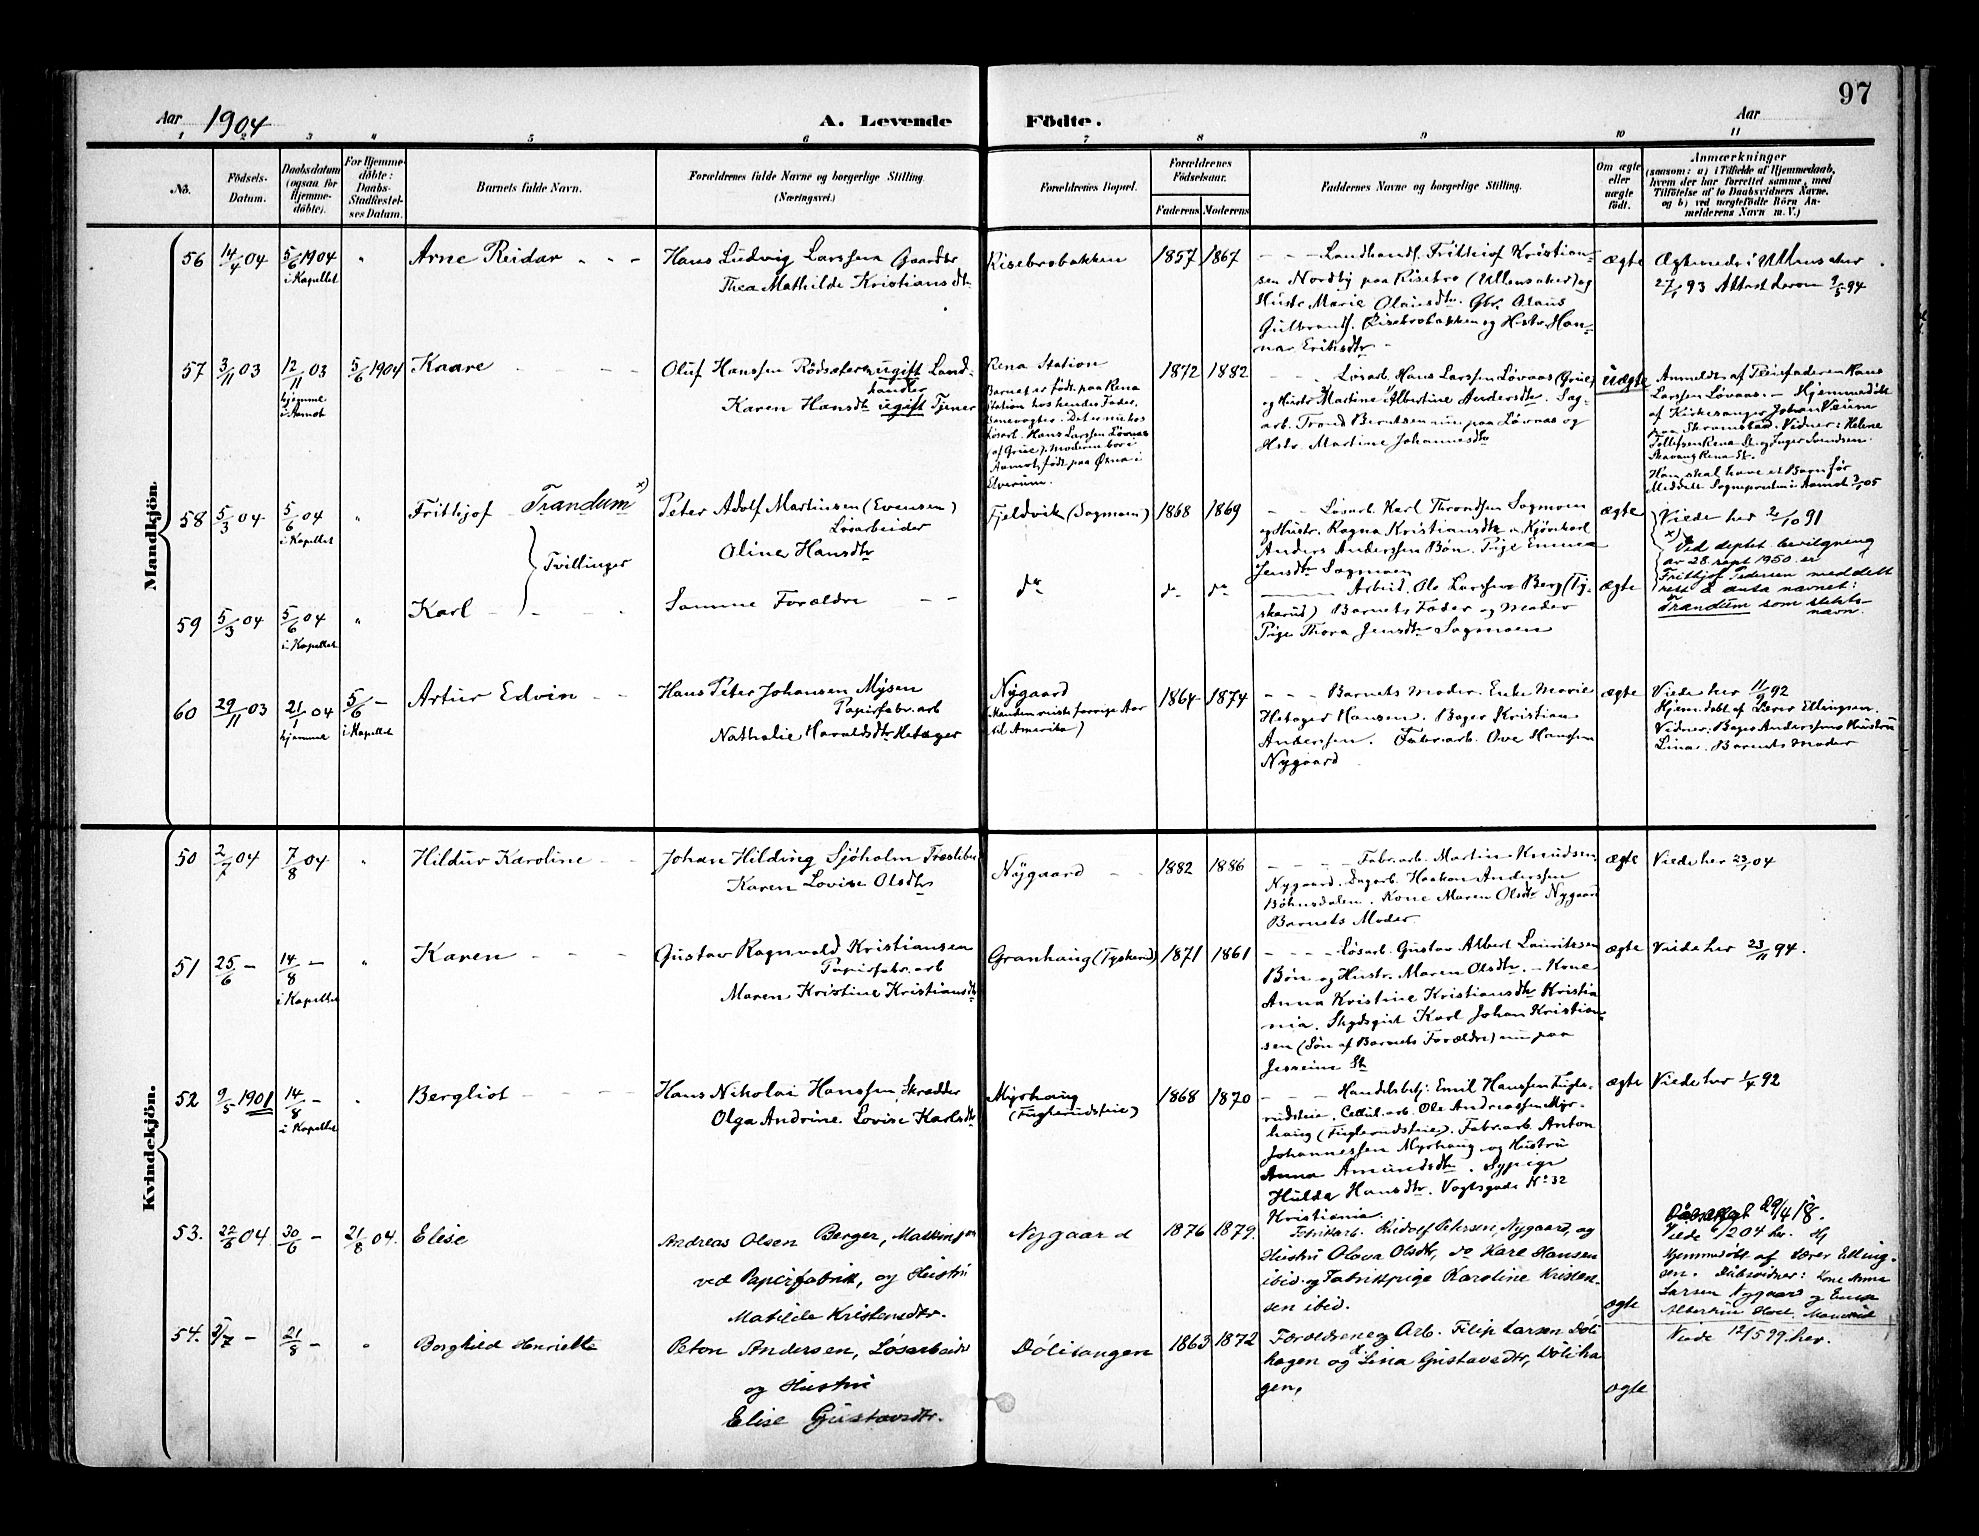 97
Aar 1904
A. Levende Födte.
Aar
1 2 3 4 5 6 7 8 9 10 11
No.
Födsels-
Datum.
Daabsdatum
(ogsaa for
Hjemme-
döbte).
For Hjemme-
döbte:
Daabs-
Stadfæstel-
ses Datum.
Barnets fulde Navn.
Forældrenes fulde Navne og borgerlige Stilling
(Næringsvei.)
Forældrenes Bopæl.
Forældrenes
Födselsaar.
Faderens Moderens
Faddernes Navne og borgerlige Stilling.
Om ægte
eller
uægte
födt.
Anmærkninger
(saasom: a) i Tilfælde af Hjemmedaab,
hvem der har forrettet samme, med
Tilföielse af to Daabsvidners Navne,
og b) ved uægtefödte Börn An-
melderens Navn m. V.)
Mandkjön.
56 14/4 04 5/6 1904
i Kapellet
"
Arne Reidar
Hans Ludvig Larssen Gaardbr
Thea Mathilde Kristiansdtr
Risebrobakken
1857 1867
Landhandl. Frithjof Kristian-
sen Nordby paa Risebro (Ullensaker) og
Hustr. Marie Olausdtr. Gbr. Olaus
Gulbrandsf. Risebrobakken og Hstr. Han-
na Eriksdtr
ægte
Ægteviede i Ullensaker
27/1 93 Attest derom 9/5 94
57 3/11 03 12/11 03
hjemme
i Aamot
5/6 1904
Kaare
Oluf Hanssen Rödsæteren ugift Land-
handler
Karen Hansdtr ugift Tjener
Rena Station
Barnet er født paa Rena
Station hos hendes Fader,
Banevogter. Det er nu hos
Løsarb. Hans Larssen Løvaas
(af Grue). Moderen bor i
Aamot, født paa Øxna i
Elverum.
1872 1882
Løsarb. Hans Larssen Løvaas (Grue)
og Hustr Martine Albertine Andersdtr. Sag-
arb. Trond Berntsen nu paa Løvaas og
Hstr. Martine Johannesdtr
uægte
Anmeldt af Pleiefaderen Hans
Larssen Løvaas. – Hjemmedöbt
af Kirkesanger Johan Veum
paa Skramstad. Vidner: Helene
Tollefsen Rena St. og Inger Lundsen
Skavang Rena St.
Han skal have et Barn før
Meddelt Sogneprsten i Aamot 3/1 05
58 5/3 04 5/6 04
i Kapellet
"
Frithjof Trandum x)
Tvillinger
Peter Adolf Martinsen (Evensen)
Løsarbeider
Oline Hansdtr
Fjeldvik (Sagmoen)
1868 1869
Løsarb. Karl Throndsen Sagmoen
og Hustr. Ragna Kristiansdtr. Kjørekarl
Anders Anderssen Bön. Pige Emma
Jensdtr Sagmoen
ægte
Viede her 2/10 91
x) Ved deptet bevilgning
av 28. sept 1950 er
Frithjof Pedersen meddelt
rett å anta navnet:
Trandum som slekts-
navn.
59 5/3 04 5/6 04
i Kapellet
"
Karl
Samme Forældre
do do do
Arbeid. Ole Larssen Berg (Ty-
skerud) Barnets Fader og Moder
Pige Thora Jensdtr Sagmoen
ægte
60 29/11 03 21/1 04
hjemme
5/6 –
i Kapellet
Artur Edvin
Hans Peter Johansen Mysen
Papirfabr. arb
Nathalie Haraldsdtr Hetager
Nygaard
(Manden reiste forrige Aar
til Amerika)
1864 1874
Barnets Moder. Enke Marie
Hetager Hansen. Bager Kristian
Anderssen. Fabr. arb. Ove Hanssen
Nygaard
ægte
Viede her 11/9 92
Hjem. døbt af Lærer Ellingsen.
Vidner: Bager Anderssens Hustru
Lina. Barnets Moder
Kvindekjön.
50 2/7 04 7/8 04
"
Hildur Karoline
Johan Hilding Sjöholm Træsliber
Karen Lovise Olsdtr
Nygaard
1882 1886
Fabr. arb. Martin Knudsen
Nygaard. Dagarb. Haakon Anderssen
Böhnsdalen. Kone Maren Olsdtr Nygaard
Barnets Moder.
ægte
Viede her 23/1 04
51 25/6 – 14/8 –
i Kapellet
"
Karen
Gustav Ragnvald Kristiansen
Papirfabr. arb
Maren Kristine Kristiansdtr
Granhaug (Tyskerud)
1871 1861
Løsarb. Gustav Albert Lauritssen
Bön og Hustr. Maren Olsdtr. – Kone
Anna Kristine Kristiansdtr Kristia-
nia. Skydsgut Karl Johan Kristian-
sen (Søn af Barnets Forældre) nu paa
Jessheim St
ægte
Viede her 23/11 94.
52 9/5 1901 14/8 –
i Kapellet
"
Bergliot
Hans Nikolai Hanssen Skrædder
Olga Andrine Lovise Karlsdtr
Myrhaug
(Fuglerudseie)
1868 1870
Handelsbetj. Emil Hanssen Fugle-
rudseie. Cellul. arb. Ole Andreassen Myr-
haug (Fuglerudseie). Fabr. arb. Anton
Johannessen Myrhaug og Hustru
Anna Amundsdtr. Sypige
Hulda Hansdtr. Vogtsgade No 32
Kristiania.
ægte
Viede her 1/4 92
53. 22/6 04 30/6 – 21/8 04.
Elise
Andreas Olsen Berger, Maskinpas
ved Papirfabrik, og Hustru
Matilde Kristansdtr.
Nygaard
1876 1879
Fabrikarb. Rudolf Petersen, Nygaard, og
Hustru Olava Olsdtr, do Karl Hansen
ibid. og Fabrikspige Karoline Kristen-
sen ibid.
ægte
29/4 18.
Viede 6/2 04 her. Hj
Hjemmedøbt af Lærer Elling-
sen. Dåbsvidner: Kone Anna
Larsen Nygaard og
54. 3/7 – 21/8 –
"
Borghild Henriette
Peton Andersen, Løsarbeider
og Hustru
Elise Gustavsdtr.
Dölisangen
1863 1872
Forældrene og Arb. Filip Larsen Döli-
hagen og Lina Gustavsdtr, Döliha-
gen,
ægte
Viede 12/5 99 her.